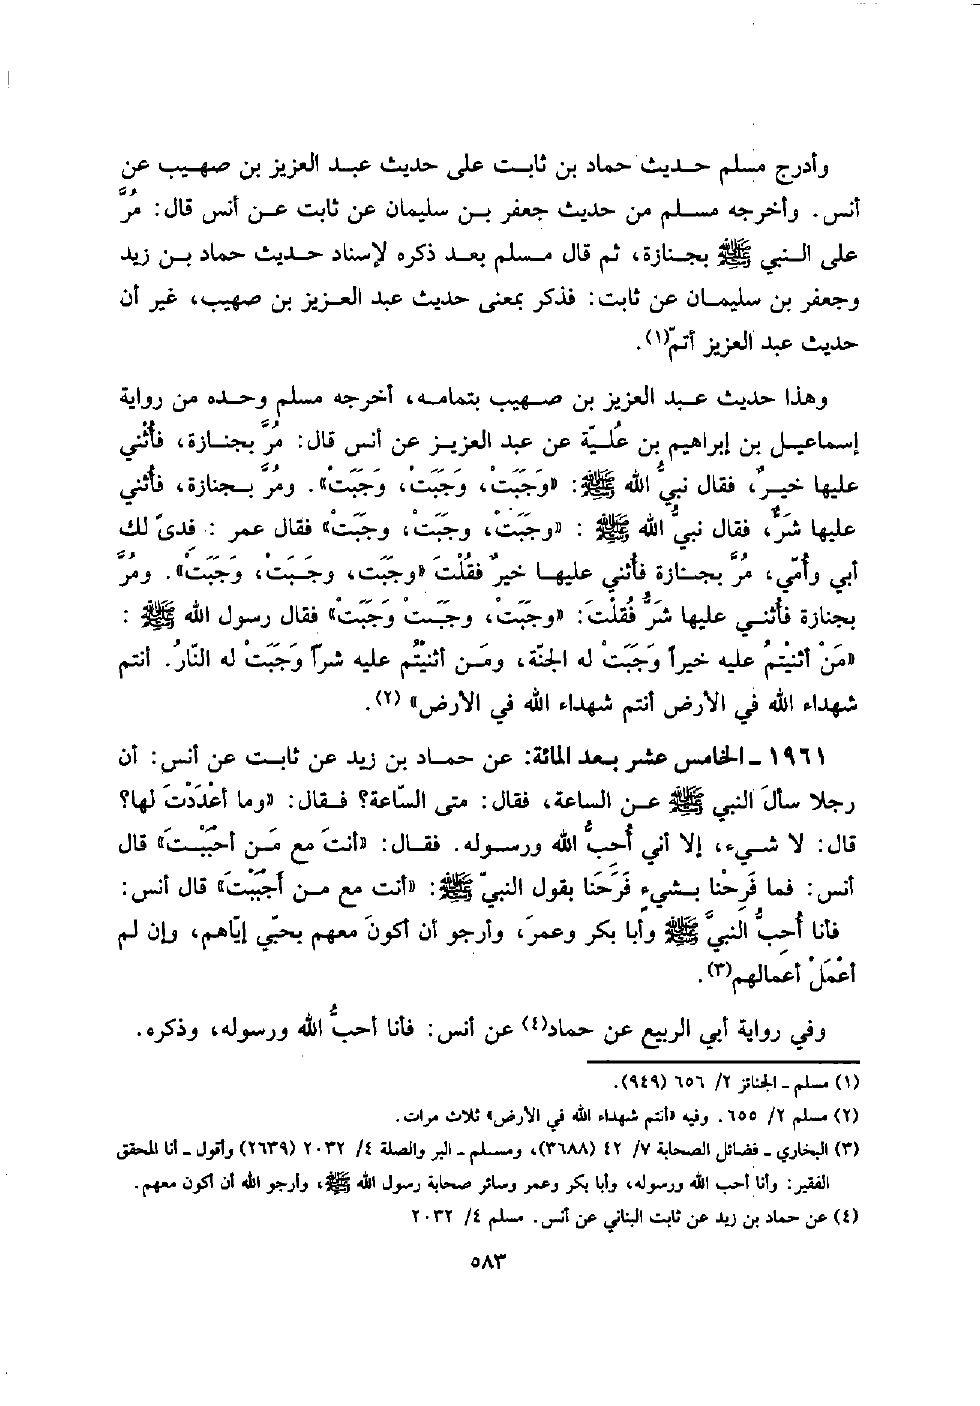 وأدرج مسلم حديث حماد بن ثابت على حديث عبد العزيز بن صهيب عن
أنس. وأخرجه مسلم من حديث جعفر بن سليمان عن ثابت عن أنس قال: مُرَّ
على النبي ﷺ بجنازة، ثم قال مسلم بعد ذكره لإسناد حديث حماد بن زيد
وجعفر بن سليمان عن ثابت: فذكر بمعنى حديث عبد العزيز بن صهيب، غير أن
حديث عبد العزيز أتمّ(١).
وهذا حديث عبد العزيز بن صهيب بتمامه، أخرجه مسلم وحده من رواية
إسماعيل بن إبراهيم بن عُليّة عن عبد العزيز عن أنس قال: مُرَّ بجنازة، فأُثْني
عليها خيرٌ، فقال نبيُّ الله ﷺ: «وَجَبَتْ، وَجَبَتْ، وَجَبَتْ». ومُرَّ بجنازة، فأُثني
عليها شَرٌّ، فقال نبيُّ الله ﷺ : «وجَبَتْ، وجَبَتْ، وجَبَتْ» فقال عمر : فدىً لك
أبي وأُمّي، مُرَّ بجنازة فأُثني عليها خيرٌ فقُلْتَ «وجَبَتْ، وجَبَتْ، وجَبَتْ». ومُرَّ
بجنازة فأُثني عليها شَرٌّ فقُلتَ: «وجَبَتْ، وجَبَتْ وَجَبَتْ» فقال رسول الله ﷺ :
«مَنْ أثنيتُم عليه خيراً وَجَبَتْ له الجنّة، ومَن أثنيتُم عليه شراً وَجَبَتْ له النّارُ. أنتم
شهداء الله في الأرض أنتم شهداء الله في الأرض» (٢).
١٩٦١ ـ الخامس عشر بعد المائة: عن حماد بن زيد عن ثابت عن أنس: أن
رجلا سألَ النبي ﷺ عن الساعة، فقال: متى السّاعة؟ فقال: «وما أعْدَدْتَ لها؟
قال: لا شيء، إلا أني أُحِبُّ الله ورسوله. فقال: «أنتَ مع مَن أحبَبْتَ» قال
أنس: فما فَرِحْنا بشيءٍ فَرَحَنا بقول النبيّ ﷺ: «أنت مع من أَحْبَبْتَ» قال أنس:
فأنا أُحِبُّ النبيَّ ﷺ وأبا بكر وعمرَ، وأرجو أن أكونَ معهم بحبّي إيّاهم، وإن لم
أعْمَلْ أعمالهم(٣).
وفي رواية أبي الربيع عن حماد(٤) عن أنس: فأنا أحبُّ الله ورسوله، وذكره.
(١) مسلم ـ الجنائز ٢/ ٦٥٦ (٩٤٩).
(٢) مسلم ٢/ ٦٥٥. وفيه «أنتم شهداء الله في الأرض» ثلاث مرات.
(٣) البخاري ـ فضائل الصحابة ٧/ ٤٢ (٣٦٨٨)، ومسلم ـ البر والصلة ٤/ ٢٠٣٢ (٢٦٣٩) وأقول ـ أنا المحقق
الفقير: وأنا أحب الله ورسوله، وأبا بكر وعمر وسائر صحابة رسول الله ﷺ، وأرجو الله أن أكون معهم.
(٤) عن حماد بن زيد عن ثابت البناني عن أنس. مسلم ٤/ ٢٠٣٢
٥٨٣